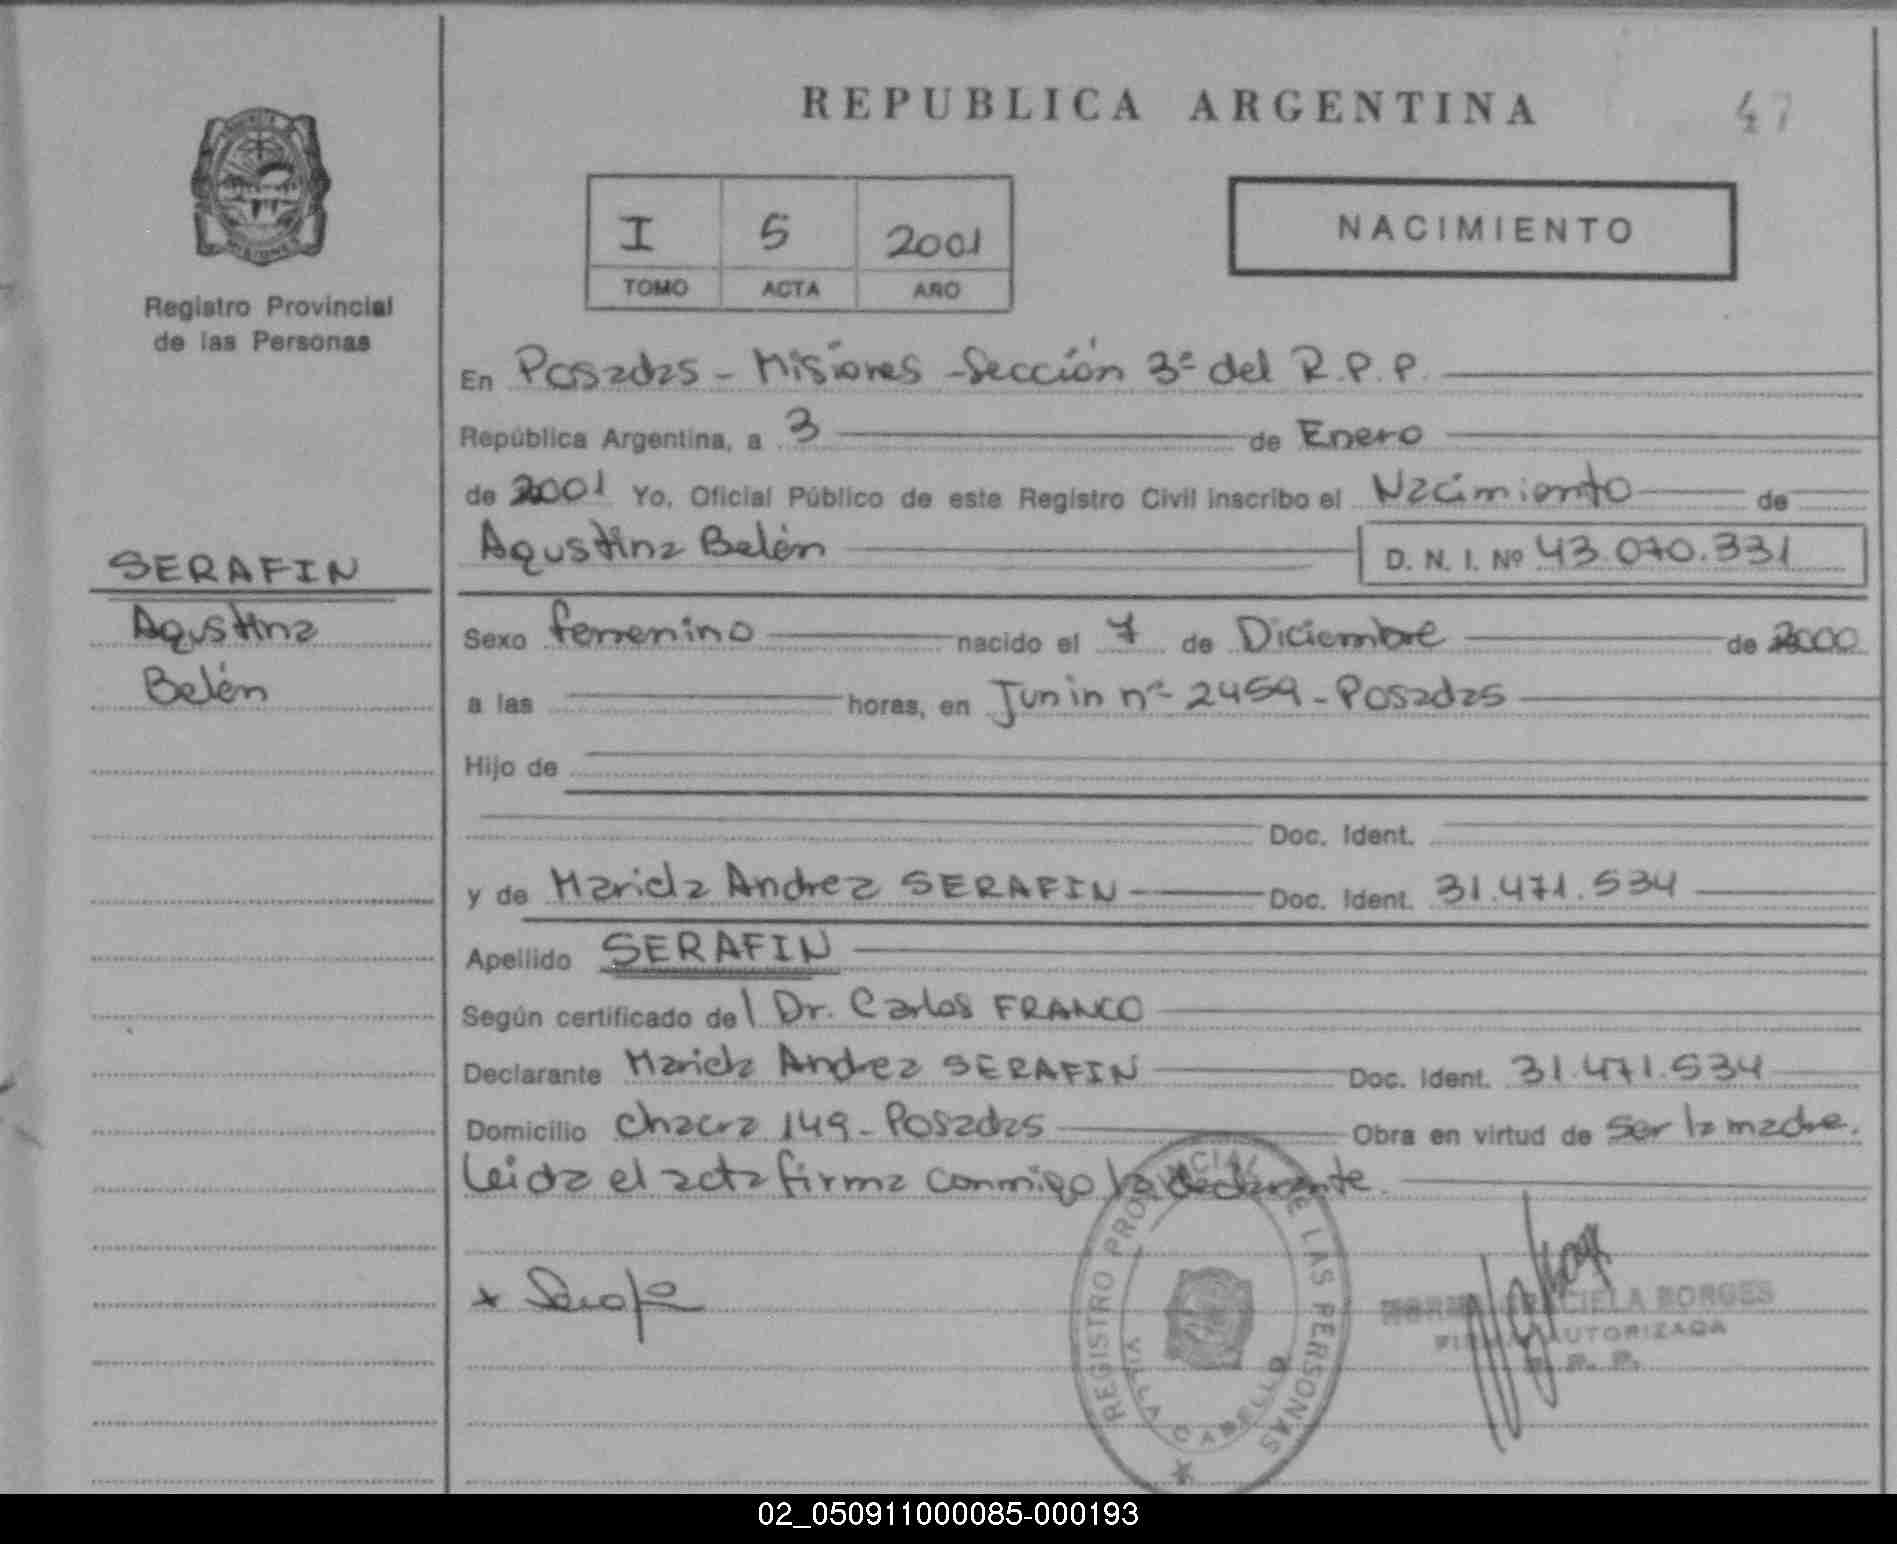 REPUBLICA ARGENTINA
47
Registro Provincial
de las Personas
I 5 2001
TOMO ACTA AÑO
NACIMIENTO
En Posadas - Misiones - Sección 3ª del R.P.P.
República Argentina, a 3 de Enero
de 2001 Yo, Oficial Público de este Registro Civil inscribo el Nacimiento de
Agustina Belén D. N. I. Nº 43.070.331
SERAFIN
Agustina
Belén
Sexo femenino nacido el 7 de Diciembre de 2000
a las horas, en Junin nº 2459 - Posadas
Hijo de
Doc. Ident.
y de Mariela Andrea SERAFIN Doc. Ident. 31.471.534
Apellido SERAFIN
Según certificado del Dr. Carlos FRANCO
Declarante Mariela Andrea SERAFIN Doc. Ident. 31.471.534
Domicilio Chacra 149 - Posadas Obra en virtud de ser la madre.
Leida el acta firma conmigo la declarante.
REGISTRO PROVINCIAL DE LAS PERSONAS
VILLA CABELLO
GRACIELA BORGES
FIRMA AUTORIZADA
R. P. P.
02_050911000085-000193